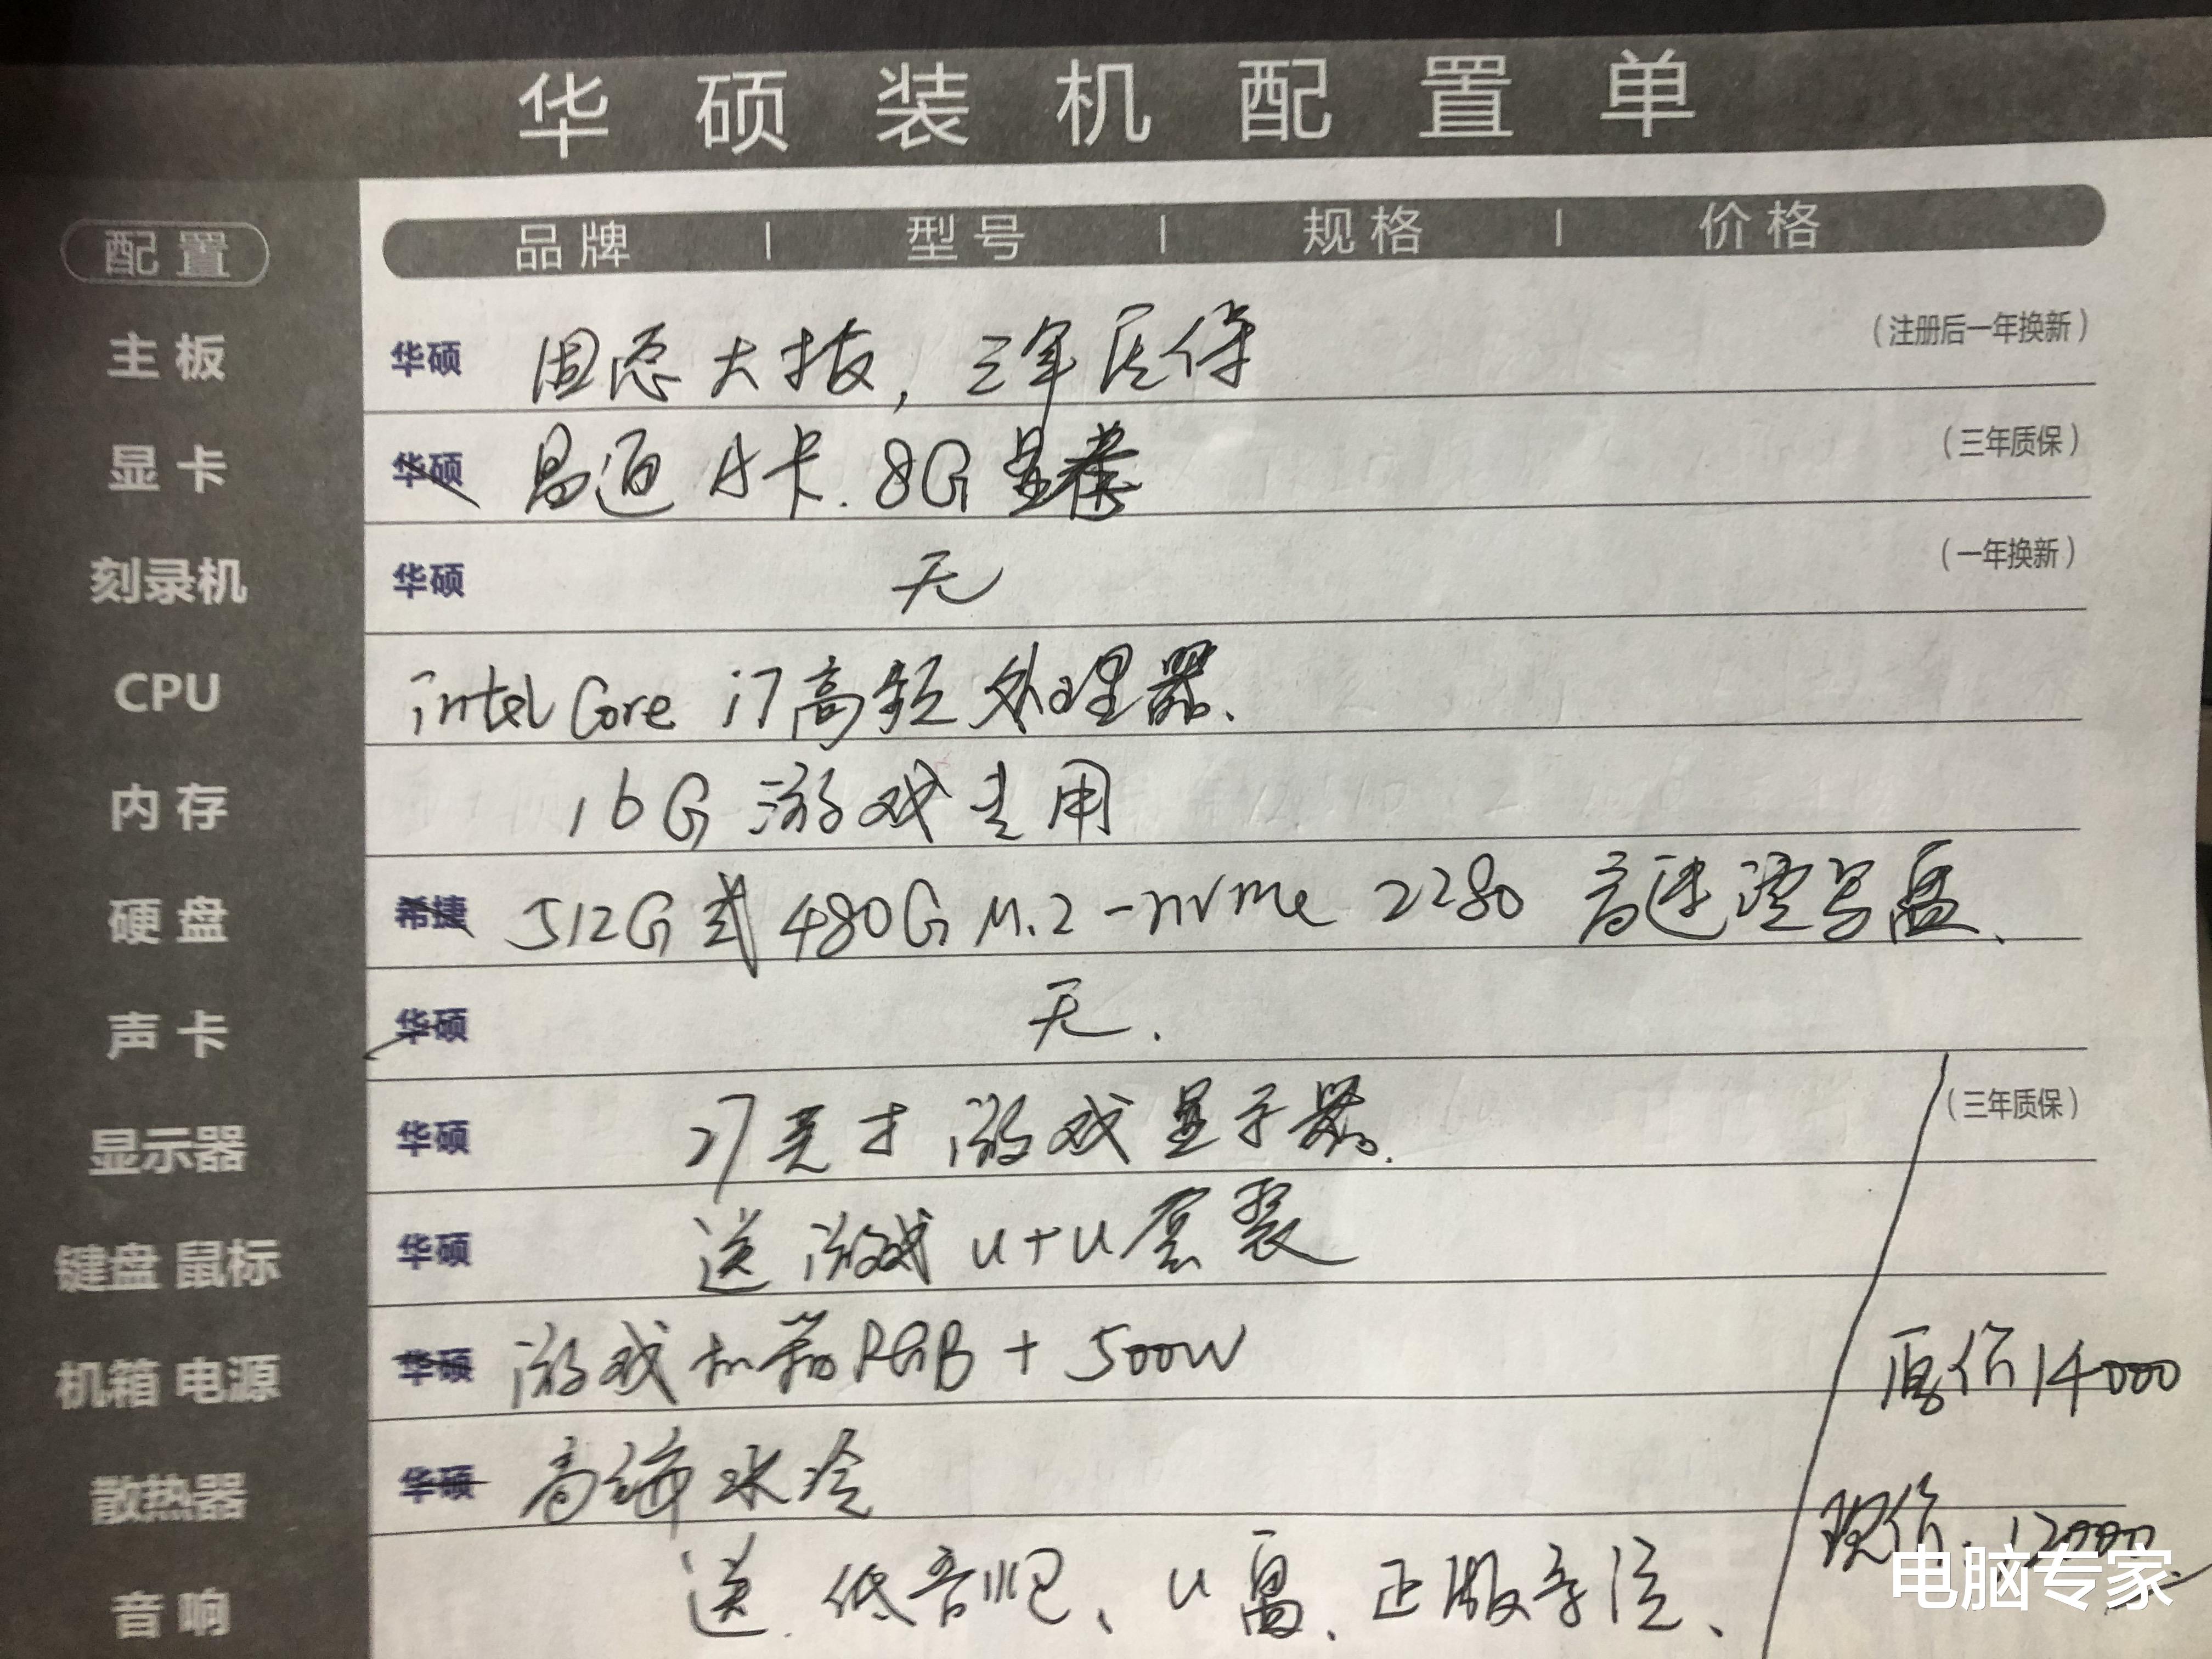 华硕装机配置单
配置 品牌 | 型号 | 规格 | 价格
主板 华硕 固态大板,三年质保 (注册后一年换新)
显卡 华硕 昌通 A卡.8G显卡 (三年质保)
刻录机 华硕 无 (一年换新)
CPU intel Core i7高频处理器、
内存 16G 游戏专用
硬盘 希捷 512G或480G M.2-nvme 2280 高速读写盘、
声卡 华硕 无.
显示器 华硕 27英寸 游戏显示器. (三年质保)
键盘 鼠标 华硕 送游戏 U+U套装
机箱 电源 华硕 游戏机箱RGB + 500W
原价14000
散热器 华硕 高端水冷
现价:12000
音响 送.低音吧、U盘、正版系统、
电脑专家